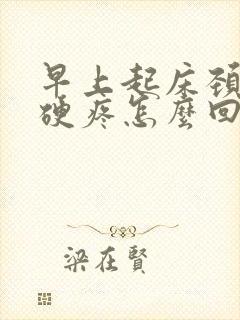 早上起床頚
硬疼怎麼回
梁在賢